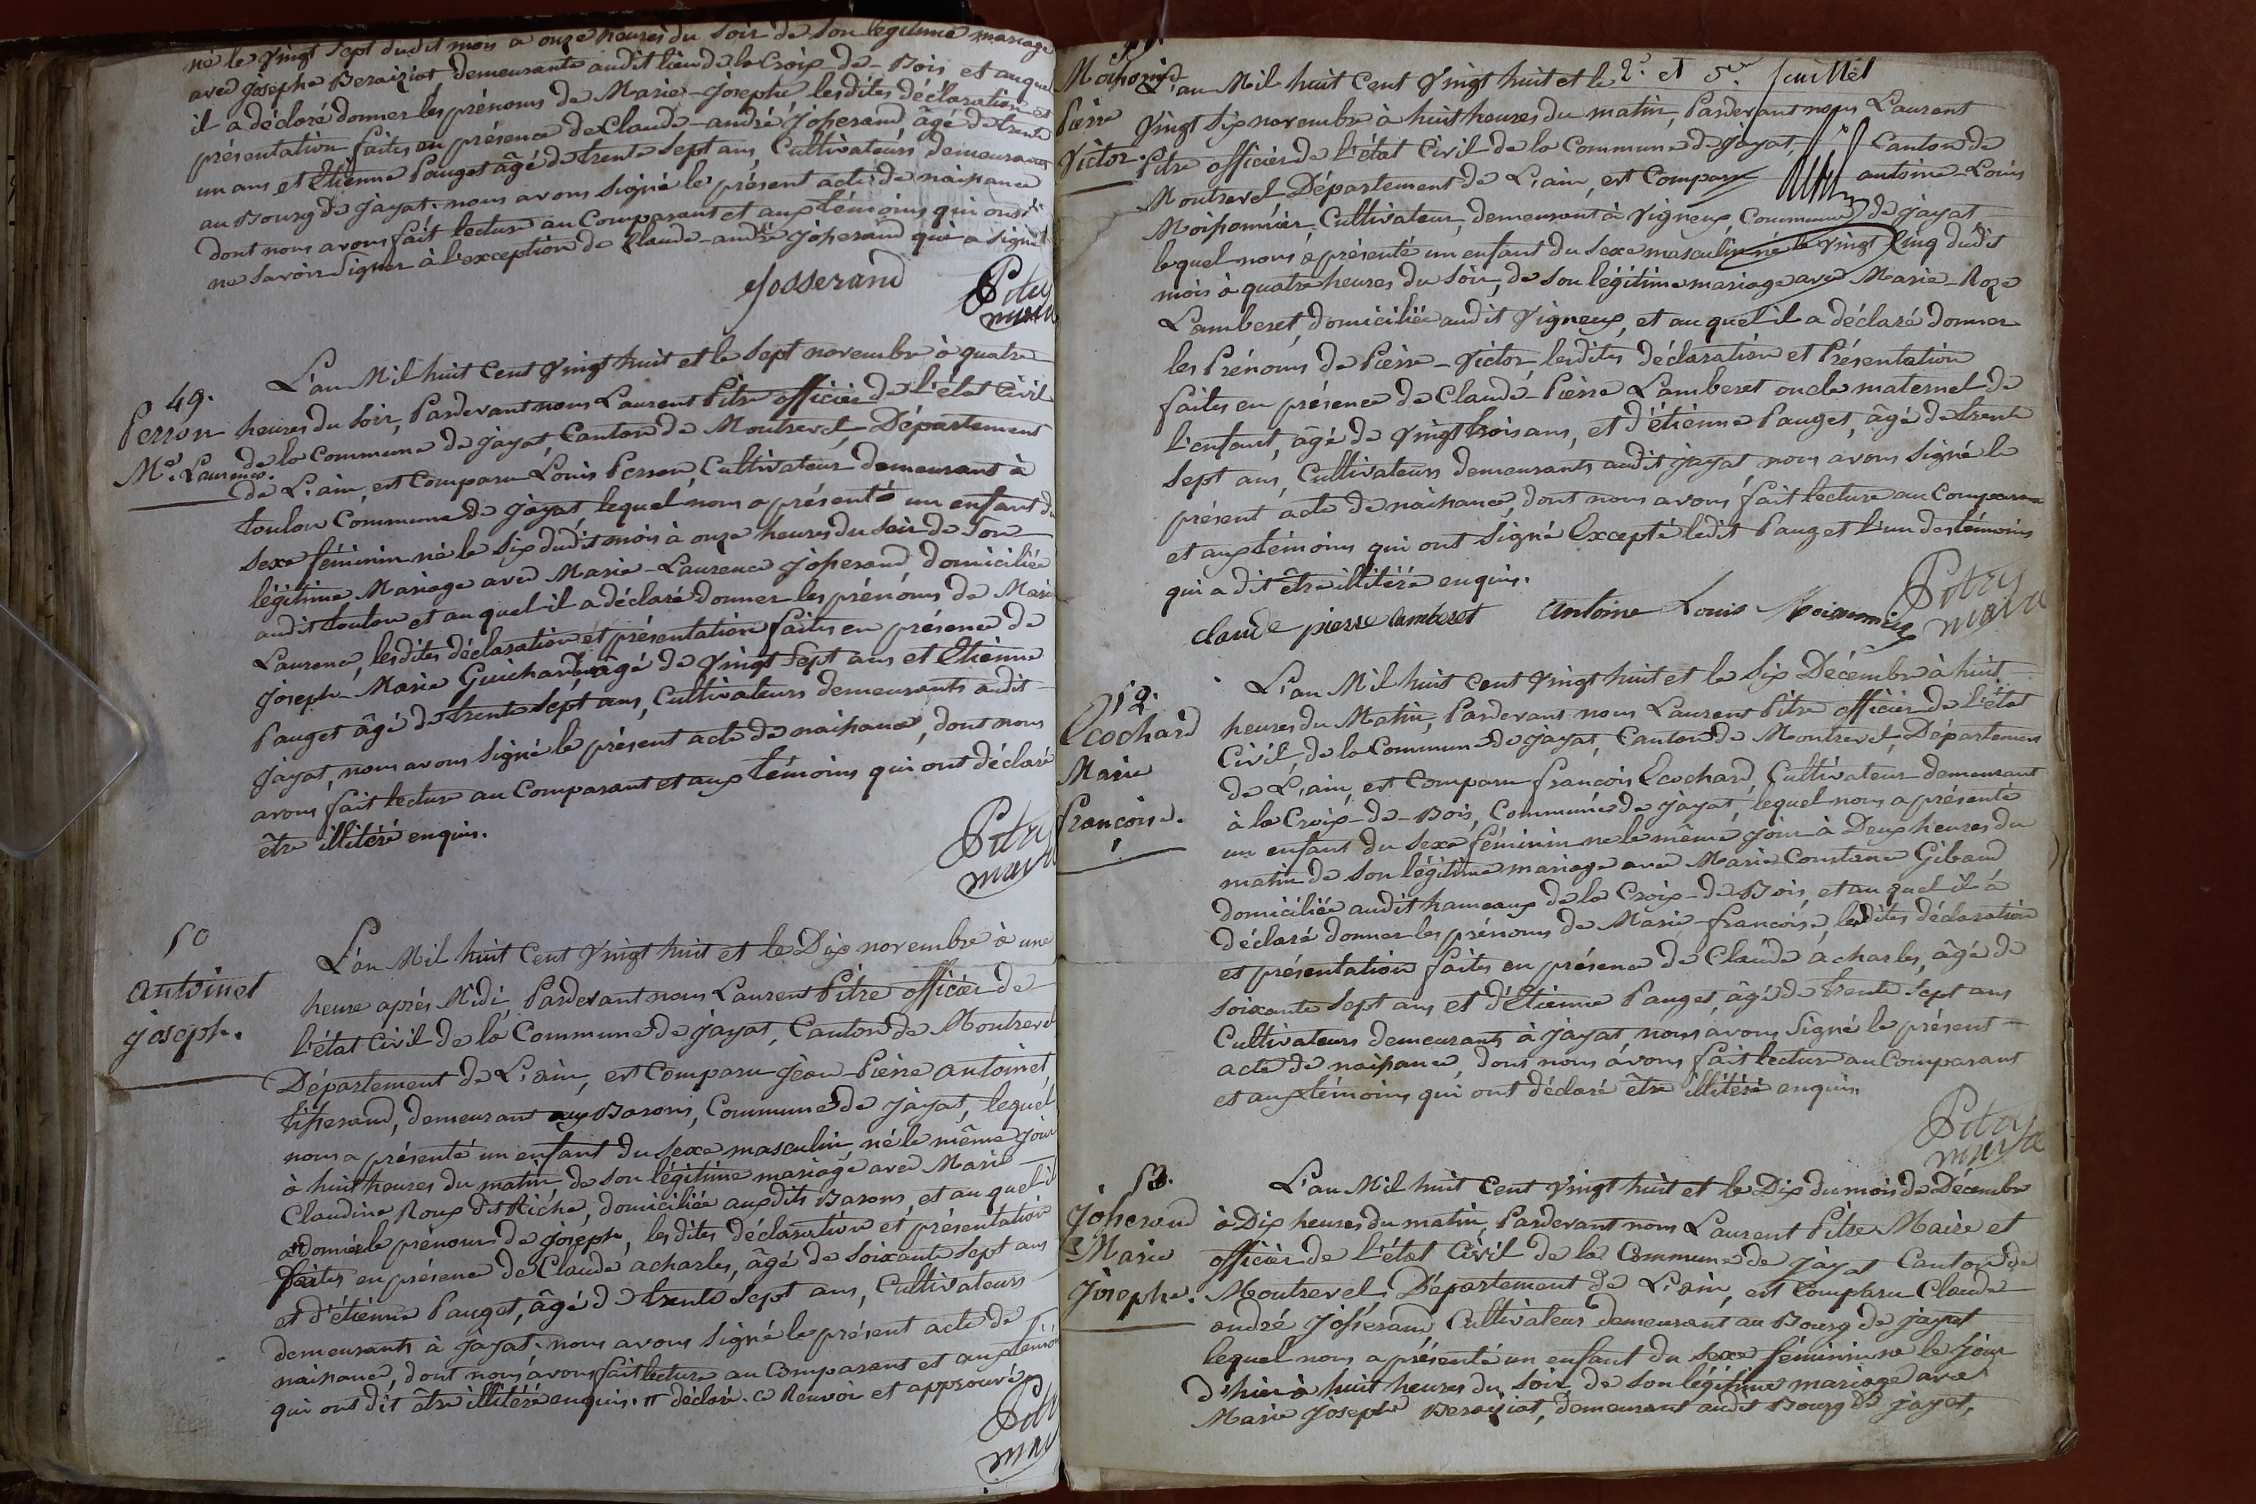 né le vingt sept dudit mois a onze heures du soir de son legitime mariage
avec josephe Beraiziat, demeurante audit lieu de la Croix-de-Bois et auquel
il a déclaré donner les prénoms de Marie-josephe lesdites déclaration et
présentation faites en présence de Claude-andré josserand, âgé de trente
un ans et Etienne Pauget âgé de trente sept ans, Cultivateurs demeurants
au Bourg de jayat. nous avons signé le présent acte de naissance
dont nous avons fait lecture au Comparant et aux témoins qui ont dit
ne savoir signer à l'exception de Claude-andré josserand qui a signé
Josserand
Pitre
maire
49.
Perron
Mie Laurence.
L'an Mil huit Cent vingt huit et le sept novembre à quatre
heures du soir, Pardevant nous Laurent Pitre officier de l'état Civil
de la Commune de jayat, Canton de Montrevel, Département
de L'ain, est Comparu Louis Perron, Cultivateur demeurant à
toulon Commune de jayat lequel nous a présenté un enfant du
sexe féminin né le six dudit mois à onze heures du soir de son
légitime Mariage avec Marie-Laurence josserand domiciliée
audit toulon et auquel il a déclaré donner les prénoms de Marie
Laurence, lesdites déclaration et présentation faites en présence de
joseph-Marie Guichard, âgé de vingt sept ans et Etienne
Pauget âgé de trente sept ans, Cultivateurs demeurants audit
jayat, nous avons signé le présent acte de naissance, dont nous
avons fait lecture au Comparant et aux témoins qui ont déclaré
être illitéré enquis.
Pitre
maire
50
antoinet
joseph.
L'an Mil huit Cent vingt huit et le Dix novembre à une
heure après Midi, Pardevant nous Laurent Pitre officier de
l'état Civil de la Commune de jayat, Canton de Montrevel
Département de L'ain, est Comparu jean-Pierre antoinet,
tisserand, demeurant aux Barons, Commune de jayat, lequel
nous a présenté un enfant du sexe masculin né le même jour
à huit heures du matin de son légitime mariage avec Marie
Claudine Roux dit Riche, domiciliée auxdits Barons, et auquel il
a donné le prénom de joseph, lesdites déclaration et présentation
faites en présence de Claude acharles, âgé de soixante sept ans
et d'étienne Pauget, âgé de trente sept ans, Cultivateurs
demeurants à jayat. nous avons signé le présent acte de
naissance, dont nous avons fait lecture au Comparant et aux témoins
qui ont dit être illitéré enquis. π déclaré. ce Renvoi et approuvé
Pitre
maire
51.
Pierre
Victor.
2e et 5e feuillet
L'an Mil huit Cent vingt huit et le
vingt six novembre à huit heures du matin, Pardevant nous Laurent
Pitre officier de l'état Civil de la Commune de jayat, Canton de
Montrevel, Département de L'ain, est Comparu antoine-Louis
Moissonnier, Cultivateur, demeurant à vigneux, Commune de jayat
lequel nous a présenté un enfant du sexe masculin né le vingt Cinq dudit
mois à quatre heures du soir, de son légitime mariage avec Marie-Roze
Lamberet, domiciliée audit vigneux, et auquel il a déclaré donner
les Prénoms de Pierre-Victor lesdites déclaration et Présentation
faites en présence de Claude-Pierre Lamberet oncle maternel de
l'enfant, âgé de vingt trois ans, et d'étienne Pauget, âgé de trente
sept ans, Cultivateurs demeurants audit jayat nous avons signé le
présent acte de naissance, dont nous avons fait lecture au Comparant
et aux témoins qui ont signé Excepté ledit Pauget l'un des témoins
qui a dit être illitéré enquis.
claude pierre lamberet antoine Louis Moissonnier
Pitre
maire
52.
Ecochard
Marie
françoise.
L'an Mil huit Cent vingt huit et le six Décembre à huit
heures du Matin, Pardevant nous Laurent Pitre officier de l'état
Civil, de la Commune de jayat, Canton de Montrevel, Département
de L'ain, est Comparu françois Ecochard, Cultivateur demeurant
à la Croix-de-Bois, Commune de jayat, lequel nous a présenté
un enfant du sexe féminin né le même jour à Deux heures du
matin de son légitime mariage avec Marie Constance Giband
domiciliée audit hameaux de la Croix-de Bois, et auquel il a
déclaré donner les prénoms de Marie-françoise, lesdites déclaration
et présentation faites en présence de Claude acharles, âgé de
soixante sept ans et d'Etienne Pauget, âgé de trente sept ans
Cultivateurs demeurants à jayat, nous avons signé le présent
acte de naissance, dont nous avons fait lecture au Comparant
et aux témoins qui ont déclaré être illitéré enquis
Pitre
maire
53.
josserand
Marie
josephe.
L'an Mil huit Cent vingt huit et le Dix du mois de Décembre
à Dix heures du matin, Pardevant nous Laurent Pitre Maire et
officier de l'état Civil de la Commune de jayat Canton de
Montrevel, Département de L'ain, est Comparu Claude
andré josserand Cultivateur demeurant au Bourg de jayat
lequel nous a présenté un enfant du sexe féminin né le jour
d'hier à huit heures du soir, de son légitime mariage avec
Marie josephe Beraiziat, demeurant audit Bourg de jayat,